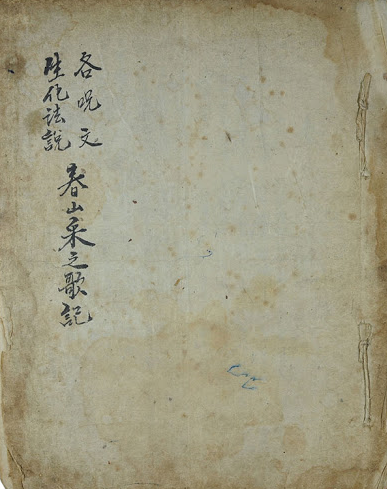 各呪文
生化法說
春山采之歌記